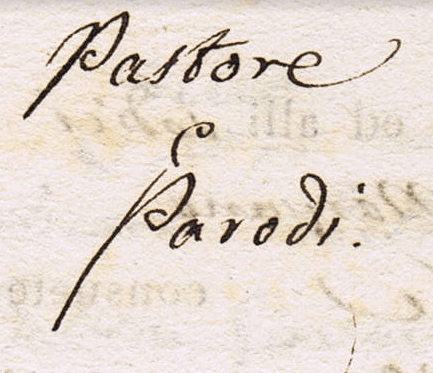 Pastore
e
Parodi.